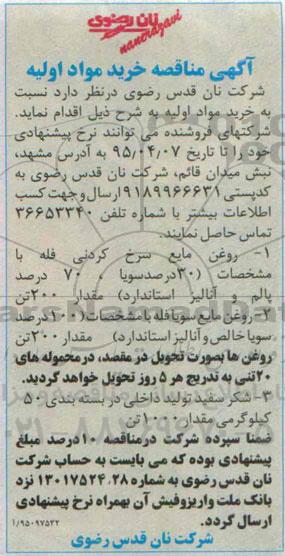 نان رضوی
nanerazavi
آگهی مناقصه خرید مواد اولیه
شرکت نان قدس رضوی درنظر دارد نسبت
به خرید مواد اولیه به شرح ذیل اقدام نماید.
شرکتهای فروشنده می توانند نرخ پیشنهادی
خود را تا تاریخ ۹۵/۰۴/۰۷ به آدرس مشهد،
نبش میدان قائم، شرکت نان قدس رضوی به
کدپستی ۹۱۸۹۹۶۶۶۳۱ ارسال و جهت کسب
اطلاعات بیشتر با شماره تلفن ۳۶۶۵۳۳۴۰
تماس حاصل نمایند.
۱- روغن مایع سرخ کردنی فله با
مشخصات (۳۰درصدسویا ، ۷۰ درصد
پالم و آنالیز استاندارد) مقدار ۲۰۰تن
۲-روغن مایع سویا فله با مشخصات(۱۰۰درصد
سویا خالص و آنالیز استاندارد) مقدار ۲۰۰تن
روغن ها بصورت تحویل در مقصد، درمحموله های
۲۰تنی به تدریج هر ۵ روز تحویل خواهد گردید.
۳-شکر سفید تولید داخلی در بسته بندی ۵۰
کیلو گرمی مقدار ۱۰۰۰تن
ضمنا سپرده شرکت درمناقصه ۱۰درصد مبلغ
پیشنهادی بوده که می بایست به حساب شرکت
نان قدس رضوی به شماره ۱۳۰۱۷۵۲۴.۲۸ نزد
بانک ملت واریزوفیش آن بهمراه نرخ پیشنهادی
ارسال گردد.
۱/۹۵۰۹۷۵۳۲
شرکت نان قدس رضوی